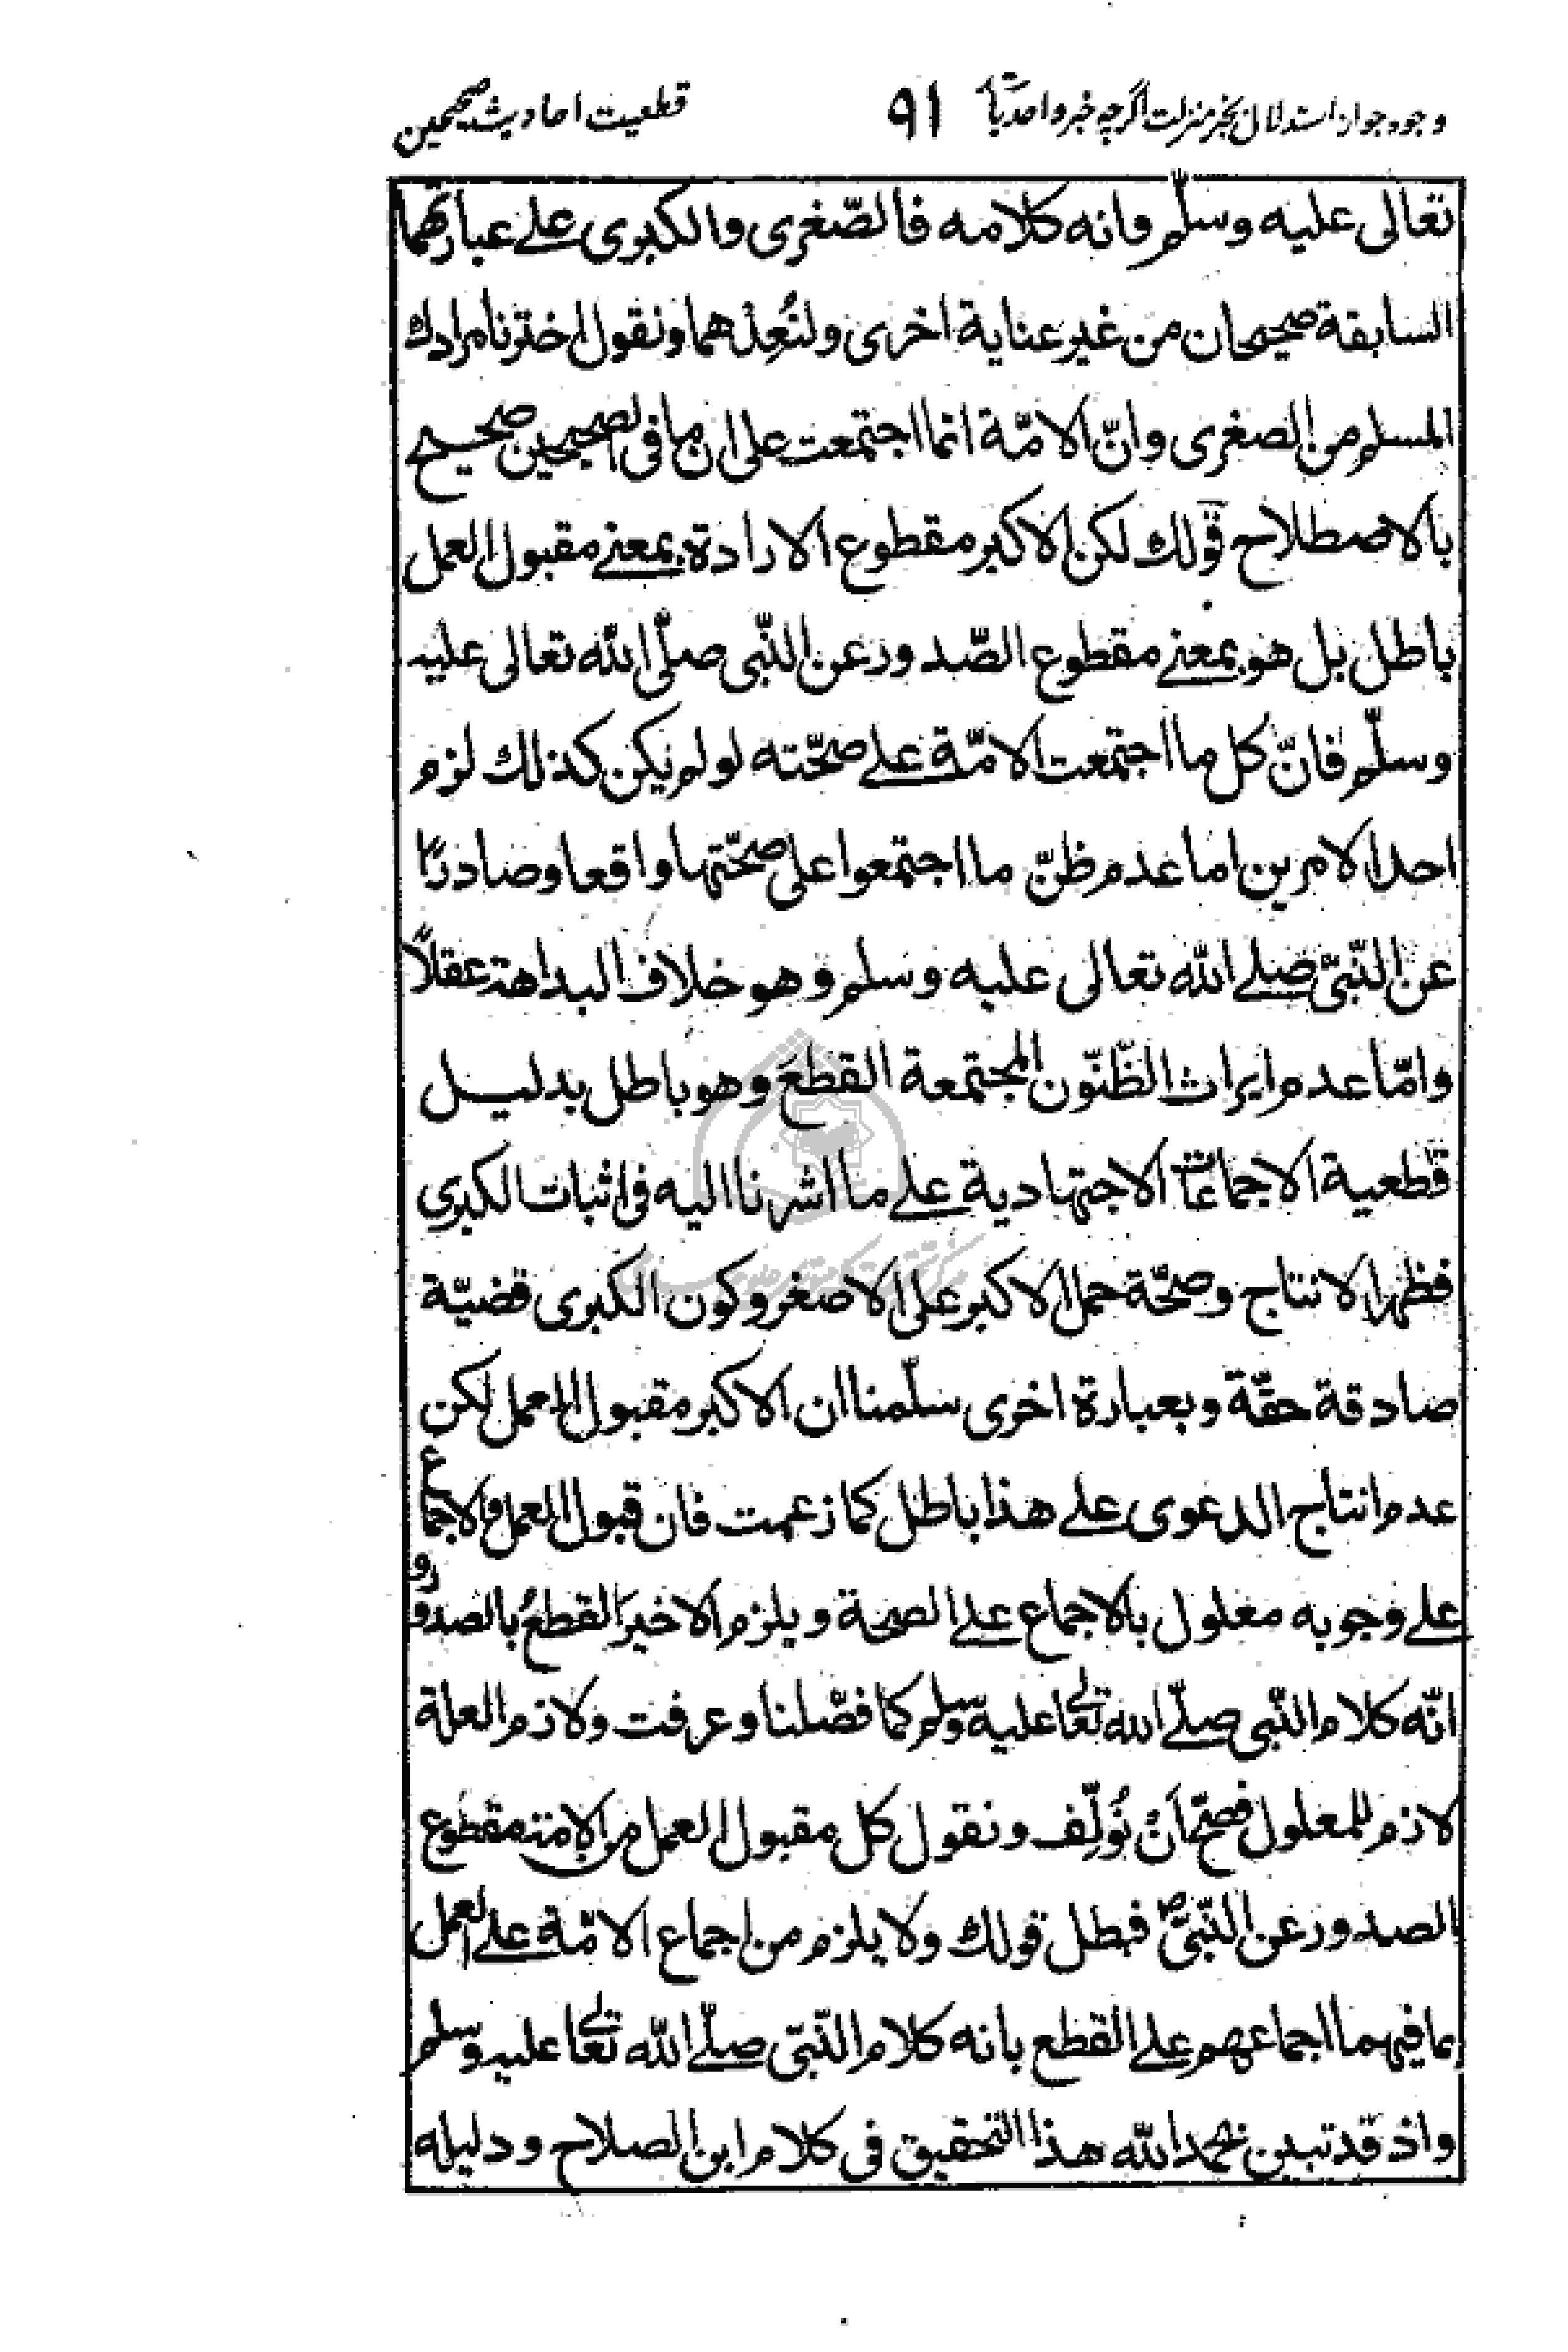 وجوه جواز استدلال بخبر منزلت اگرچه خبر واحد باشد ٩١ قطعیت احادیث صحیحین
تعالى عليه وسلّم وانه كلامه فالصّغرى والكبرى على عبارتهما
السابقة صحيحان من غير عناية اخرى ولنُعِدْهما ونقول اخترنا مرادك
المسلم من الصغرى وانّ الامّة انما اجتمعت على ان ما فى الصحيحين صحيح
بالاصطلاح قولك لكن الاكبر مقطوع الارادة بمعنى مقبول العمل
باطل بل هو بمعنى مقطوع الصّدور عن النّبى صلّى الله تعالى عليه
وسلّم فانّ كل ما اجتمعت الامّة على صحّته لو لم يكن كذلك لزم
احد الامرين اما عدم ظنّ ما اجتمعوا على صحّتها واقعا وصادرًا
عن النّبىّ صلى الله تعالى عليه وسلم وهو خلاف البداهة عقلًا
وامّا عدم ايراث الظّنّون المجتمعة القطعَ وهو باطل بدليل
قطعية الاجماعات الاجتهادية على ما اشرنا اليه فى اثبات الكبرى
فظهر الانتاج وصحّة حمل الاكبر على الاصغر وكون الكبرى قضيّة
صادقة حقّة وبعبارة اخرى سلّمنا ان الاكبر مقبول العمل لكن
عدم انتاج الدعوى على هذا باطل كما زعمت فان قبول العمل والاجماع
على وجوبه معلول بالاجماع على الصحة ويلزم الاخيرَ القطعُ بالصدور
انّه كلام النّبى صلّى الله تعالى عليه وسلم كما فصّلنا وعرفت ولازم العلة
لازم للمعلول فصحّ اَنْ نُؤلِّف ونقول كل مقبول العمل من الامة مقطوع
الصدور عن النّبىّ ص فبطل قولك ولا يلزم من اجماع الامّة على العمل
بما فيهما اجماعهم على القطع بانه كلام النّبىّ صلّى الله تعالى عليه وسلم
واذ قد تبين بحمد الله هذا التحقيق فى كلام ابن الصلاح ودليله